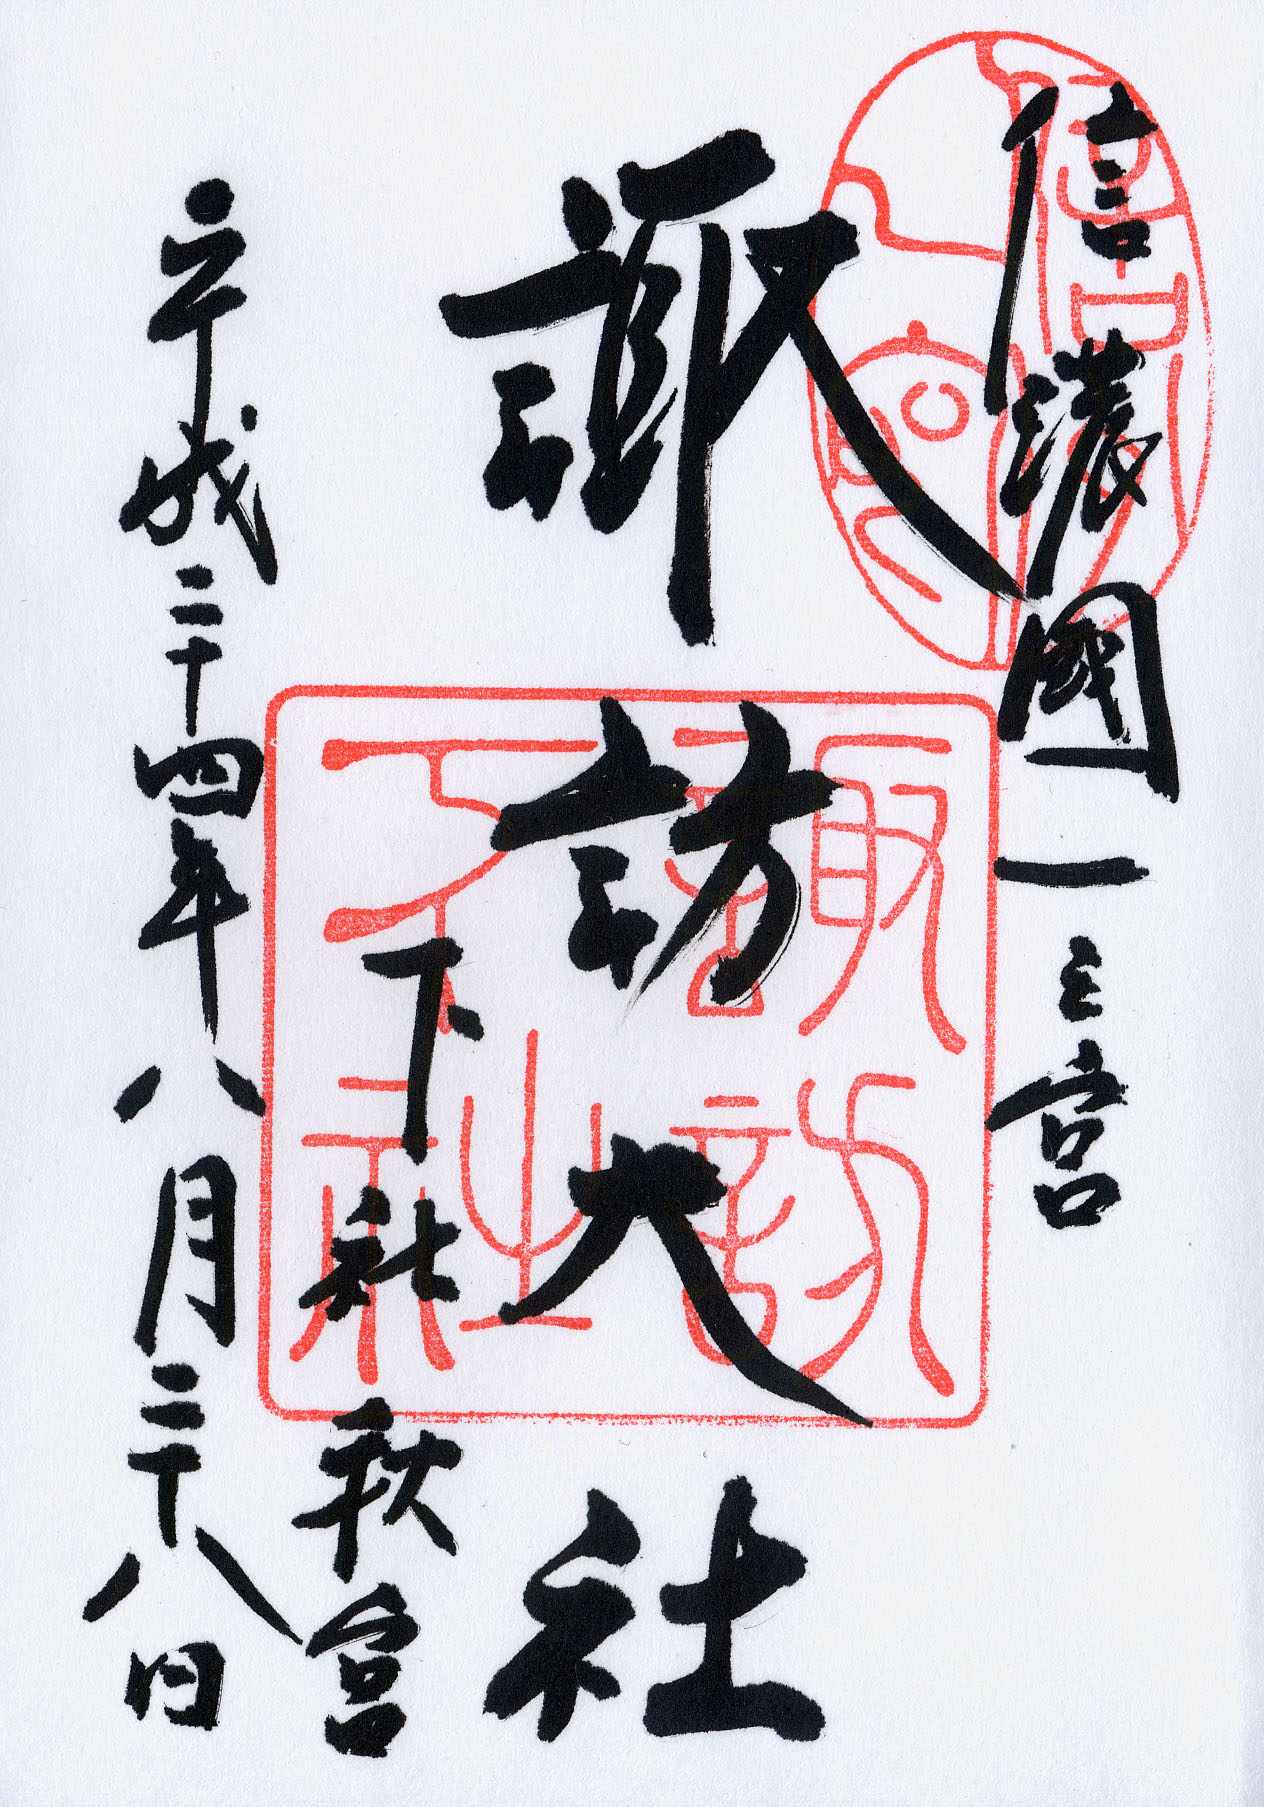 信濃國一之宮
諏訪大社
下社秋宮
平成二十四年八月二十八日
諏訪下社